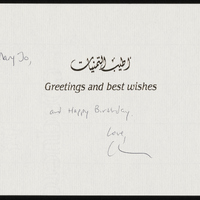 Mary Jo,
أطيب التمنيات
Greetings and best wishes
and Happy Birthday
Love,